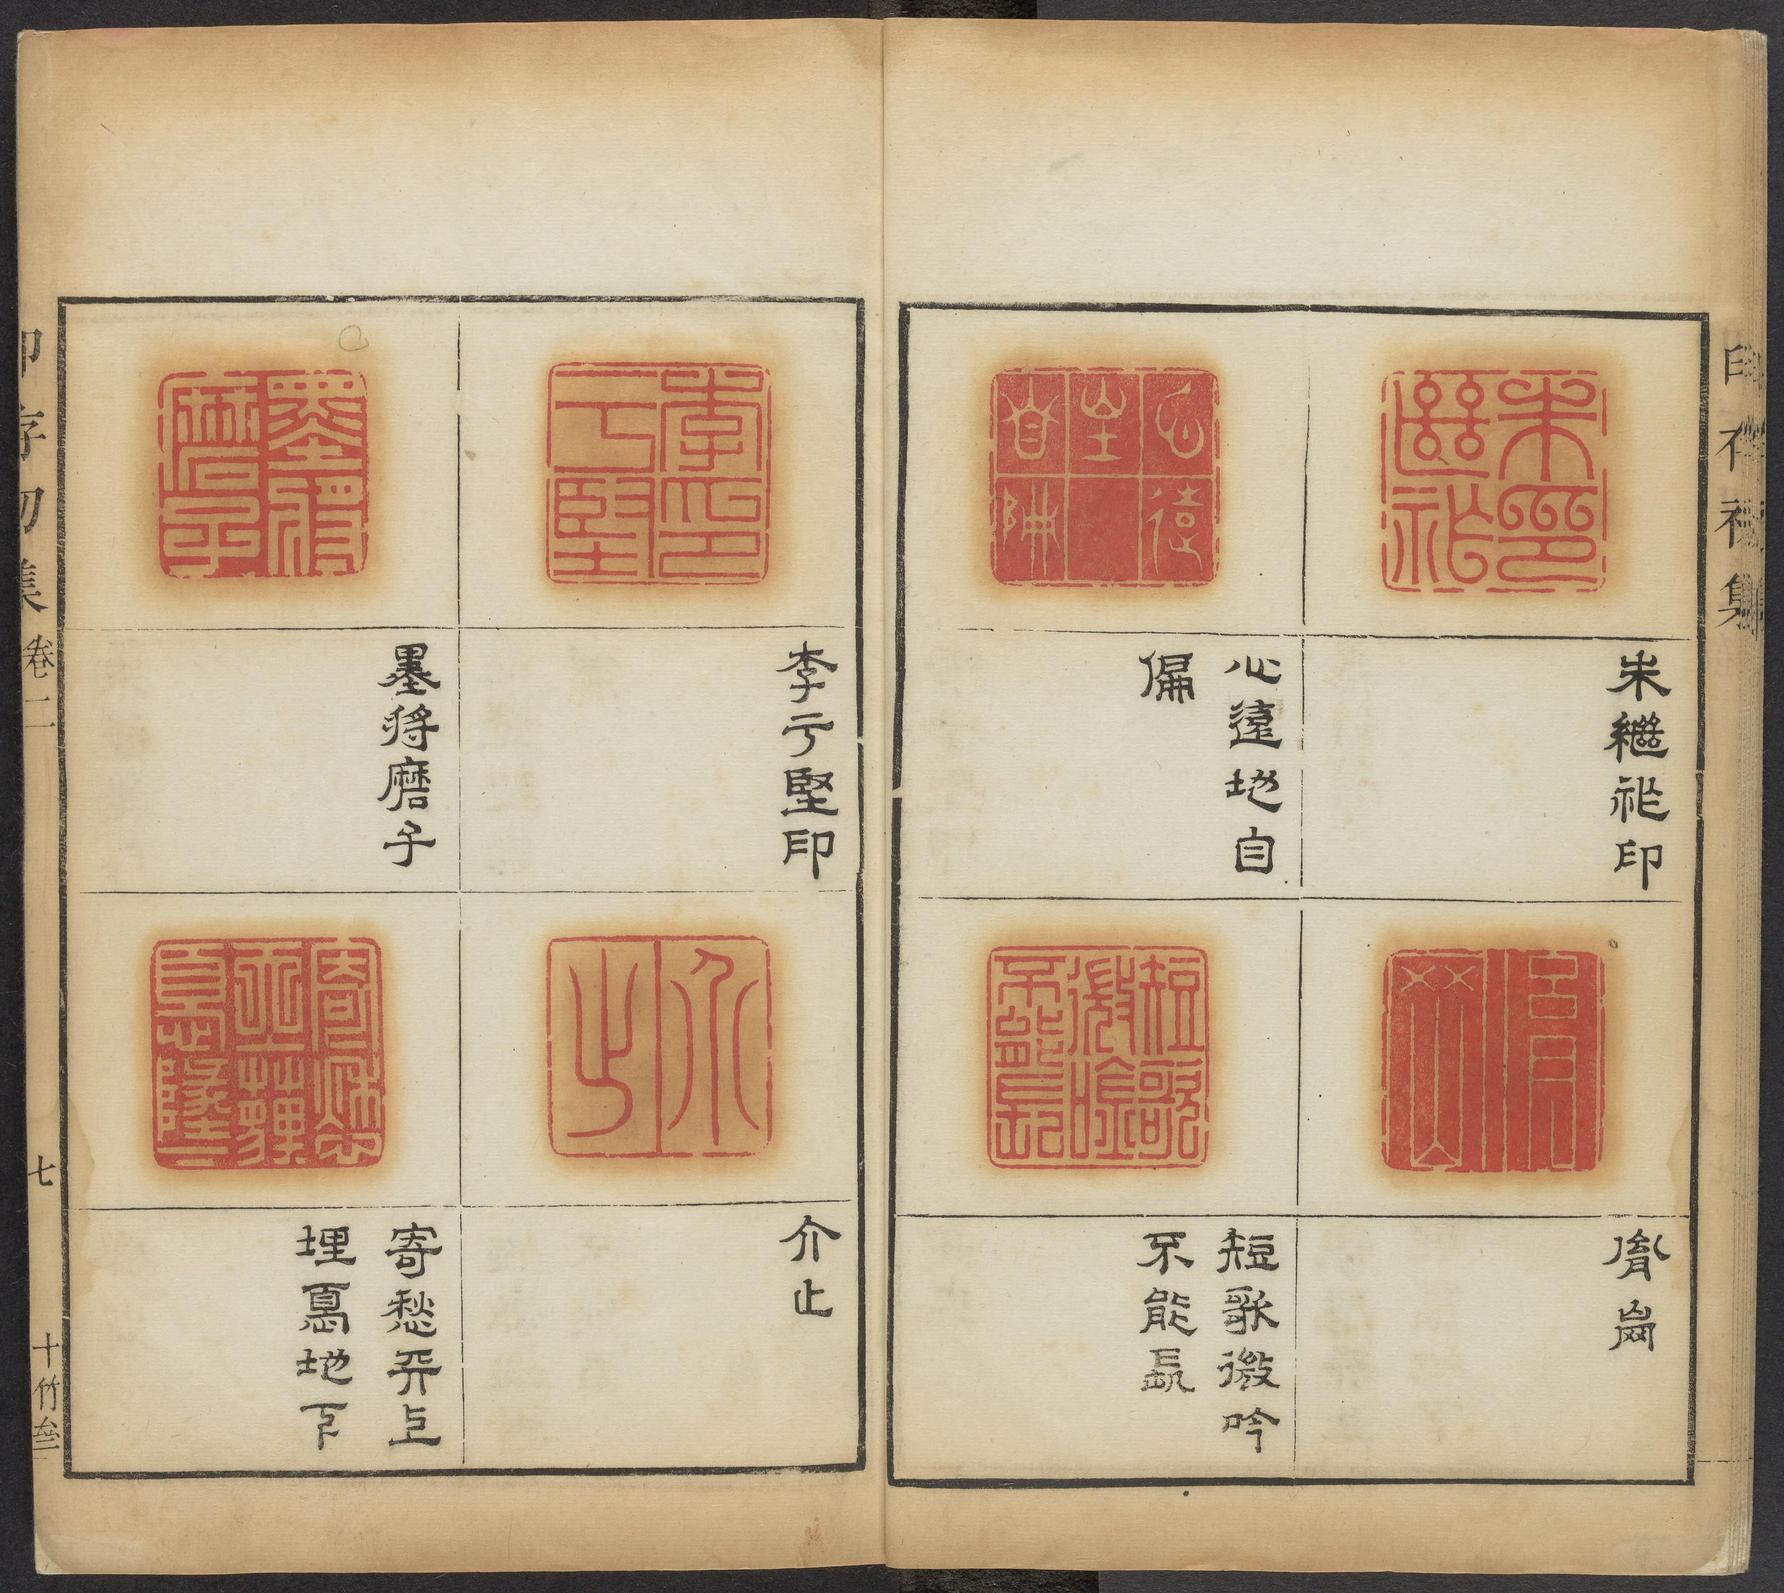 印存初集
朱繼祚印
心遠地自
偏
胤岡
短歌微吟
不能長
李亏堅印
墨將磨子
介止
寄愁天上
埋憂地下
印存初集 卷二
七
十竹